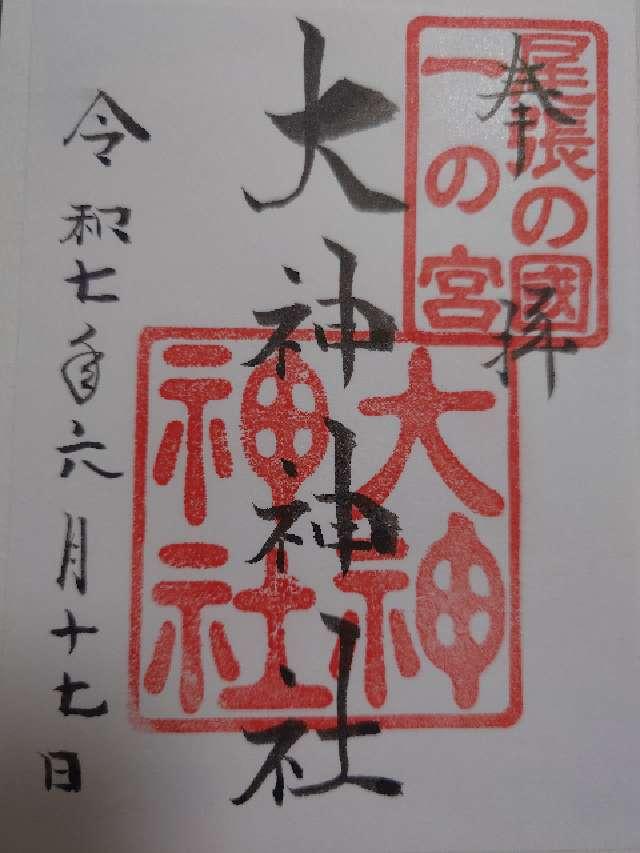 尾張の國
一の宮
奉拝
大神神社
大神
神社
令和七年六月十七日